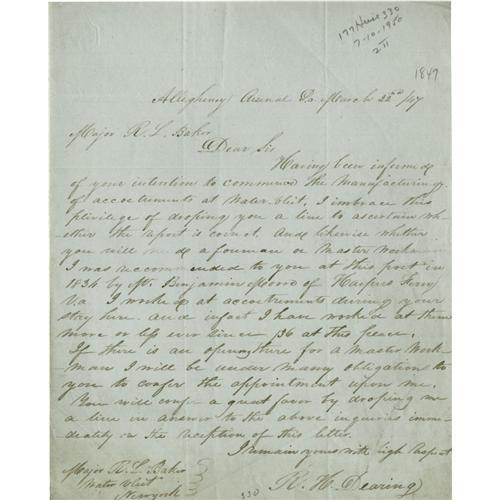 177 Husc 330
7-10-1950
2 II
1847
Allegheny Arsenal Pa March 22nd /47
Major R. L. Baker
Dear Sir
Having been informed
of your intention to commence the manufacturing
of accoctements at Water Vliet. I imbrace this
plivilege of droping you a line to ascertain wh-
ether the report is corect. And likewise whether
you will need a foreman or Master Workman
I was recommended to you at this post in
1834 by Mr. Benjamin Moore of Harpers Ferry
Va I worked at accoctrements dureing your
stay here. and infact I have worked at them
more or less ever since /36 at this place.
If there is an opening there for a Master Work-
man I will be under many obligation to
you to confer the appointment upon me.
You will confer a great favor by droping me
a line in answer to the above inquiries imme-
deately on the reception of this letter.
I remain yours with high Respect
Major R. L. Baker
Water Vliet
New york
R. H. Dearing
330